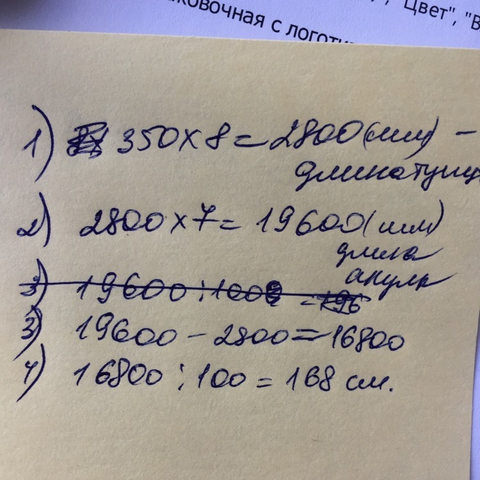 ", "Цвет", "В
ковочная с логоти
1) 350 х 8 = 2800 (мм) –
длина тунц
2) 2800 х 7 = 19600 (мм)
длина
акулы
3) 19600 : 100 = 196
3) 19600 – 2800 = 16800
4) 16800 : 100 = 168 см.